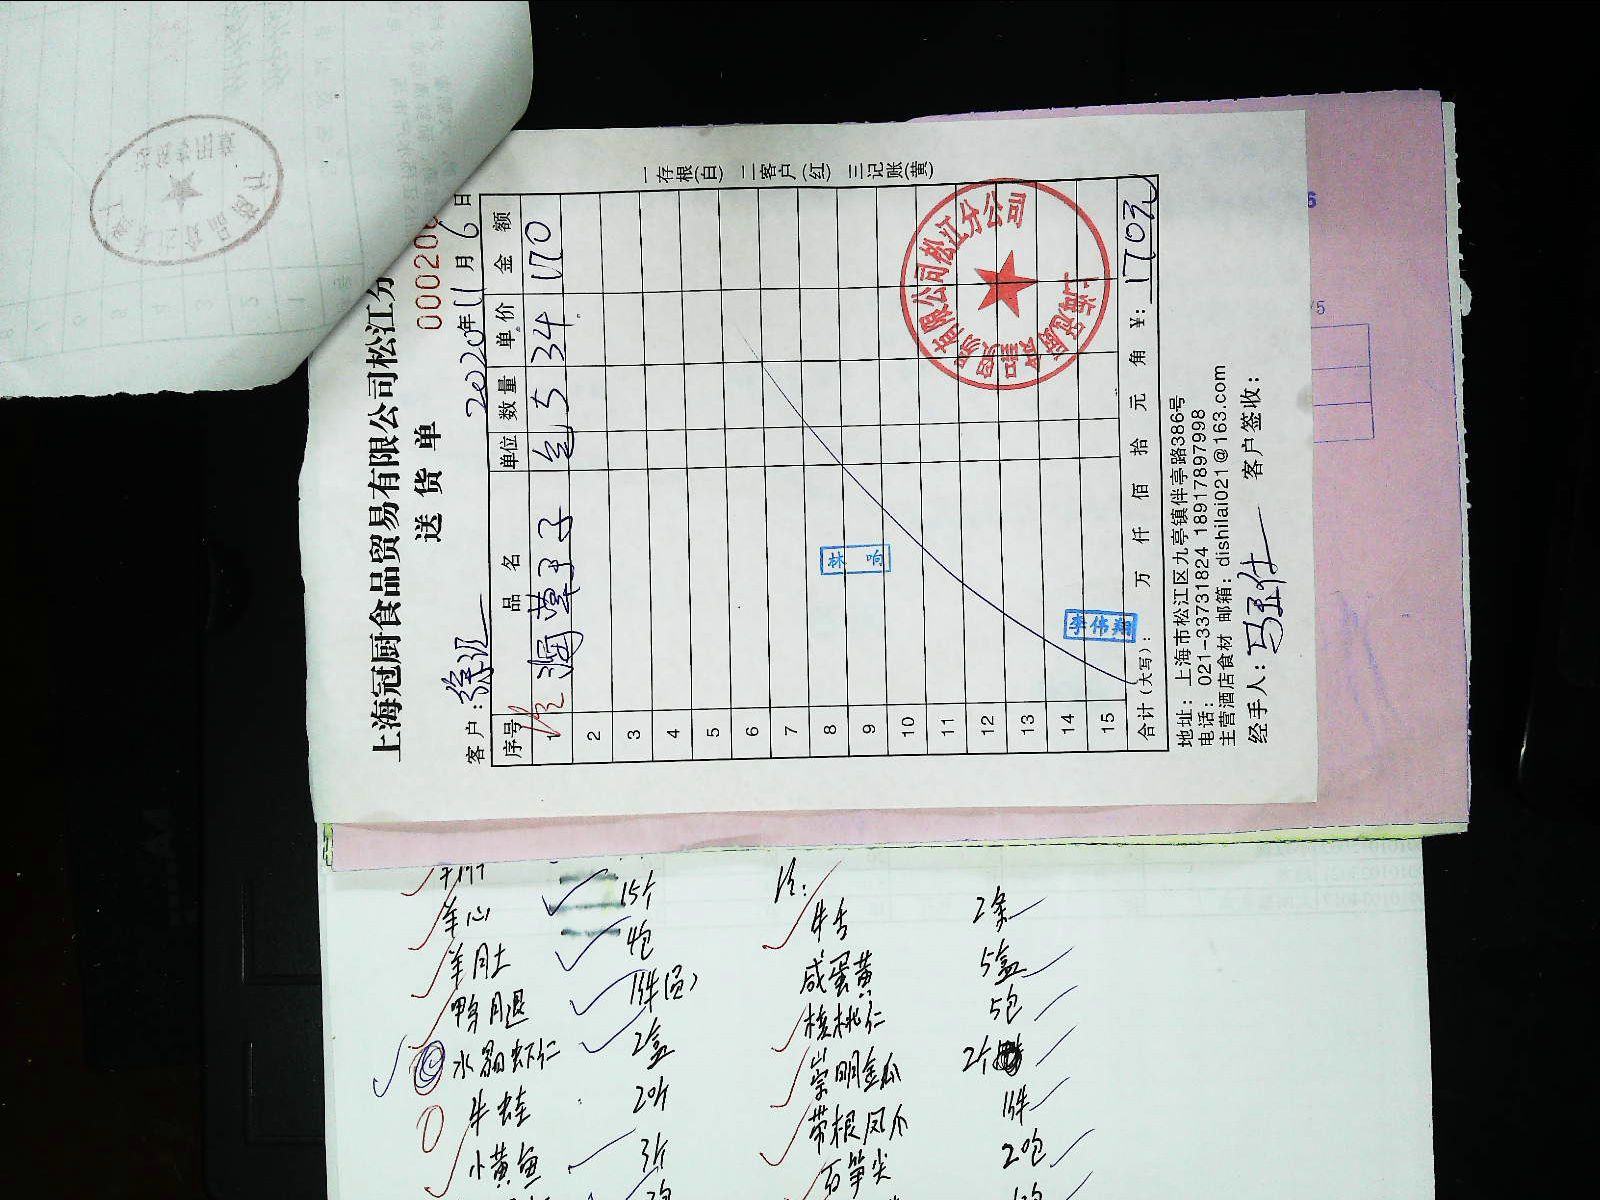 上海冠厨食品贸易有限公司松江分
送货单
000020
客户:徐汇 2020年11月6日
序号 品名 单位 数量 单价 金额
1 海草子 包 5 34 170
2
3
4
5
6
7
8
9
10
11
12
13
14
15
合计(大写): 万 仟 佰 拾 元 角 ¥: 170元
地址: 上海市松江区九亭镇伴亭路386号
电话: 021-33731824 18917897998
主营酒店食材 邮箱: dishilai021@163.com
经手人: 客户签收:
一存根(白) 二客户(红) 三记账(黄)
上海冠厨食品贸易有限公司松江分公司
李伟翔
羊心 15个
羊肚 4包
鸭腿 1件(包)
水晶虾仁 2盒
牛蛙 20个
小黄鱼 3个
牛舌 2条
咸蛋黄 5盒
核桃仁 5包
崇明金瓜 2个
带根凤爪 1件
百笋尖 20包